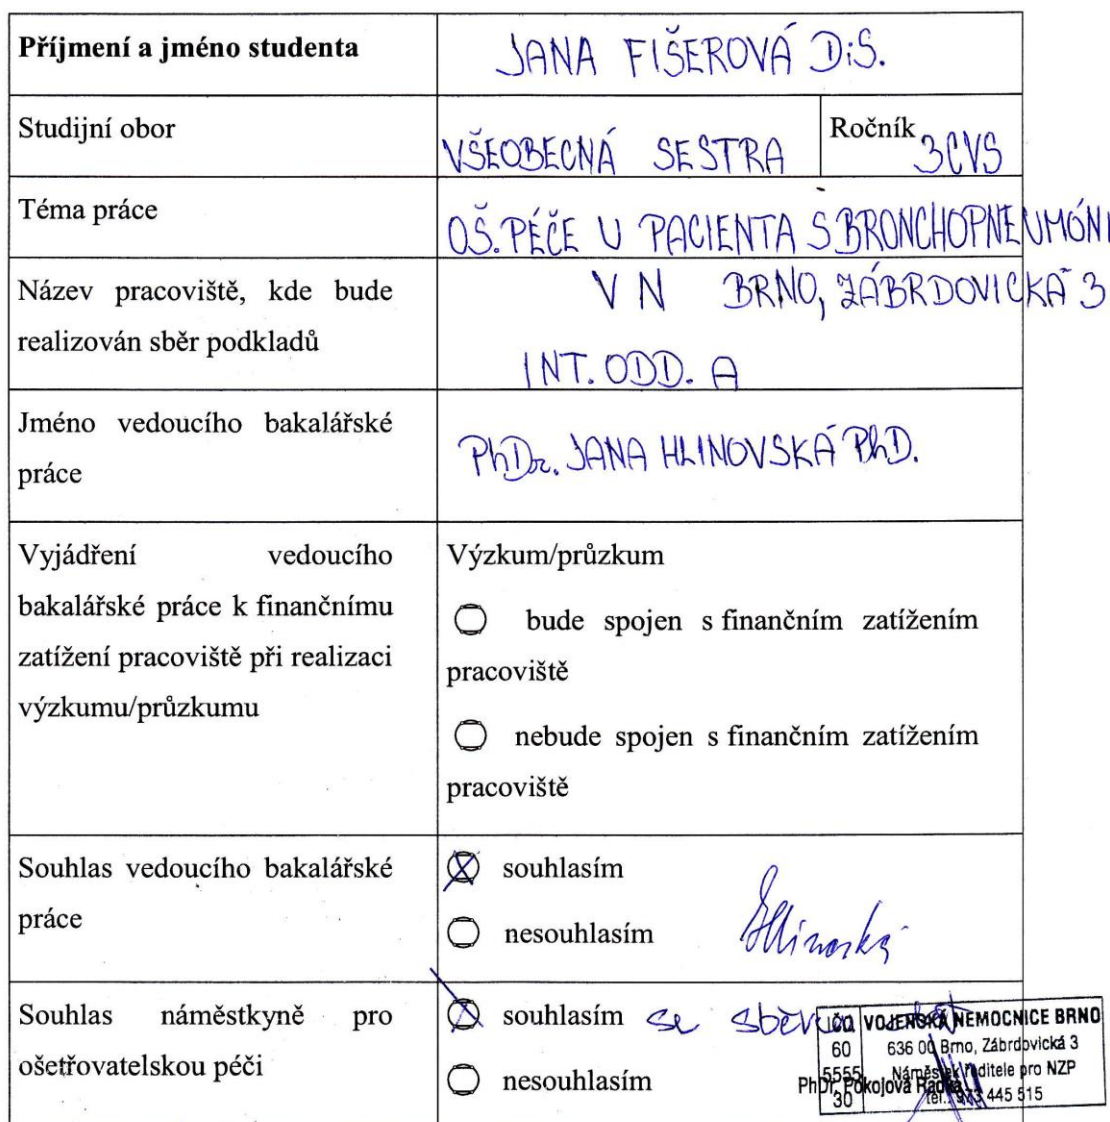 Příjmení a jméno studenta
JANA FIŠEROVÁ DiS.
Studijní obor
VŠEOBECNÁ SESTRA
Ročník 3CVS
Téma práce
OŠ. PÉČE U PACIENTA S BRONCHOPNEUMÓNI
Název pracoviště, kde bude
realizován sběr podkladů
VN BRNO, ZÁBRDOVICKÁ 3
INT. ODD. A
Jméno vedoucího bakalářské
práce
PhDr. JANA HLINOVSKÁ PhD.
Vyjádření vedoucího
bakalářské práce k finančnímu
zatížení pracoviště při realizaci
výzkumu/průzkumu
Výzkum/průzkum
bude spojen s finančním zatížením
pracoviště
nebude spojen s finančním zatížením
pracoviště
Souhlas vedoucího bakalářské
práce
souhlasím
nesouhlasím
Hlinovská
Souhlas náměstkyně pro
ošetřovatelskou péči
souhlasím se sběrem
nesouhlasím
IČO
60
5555
30
VOJENSKÁ NEMOCNICE BRNO
636 00 Brno, Zábrdovická 3
Náměstek ředitele pro NZP
tel.: 973 445 515
PhDr. Pokojová Radka